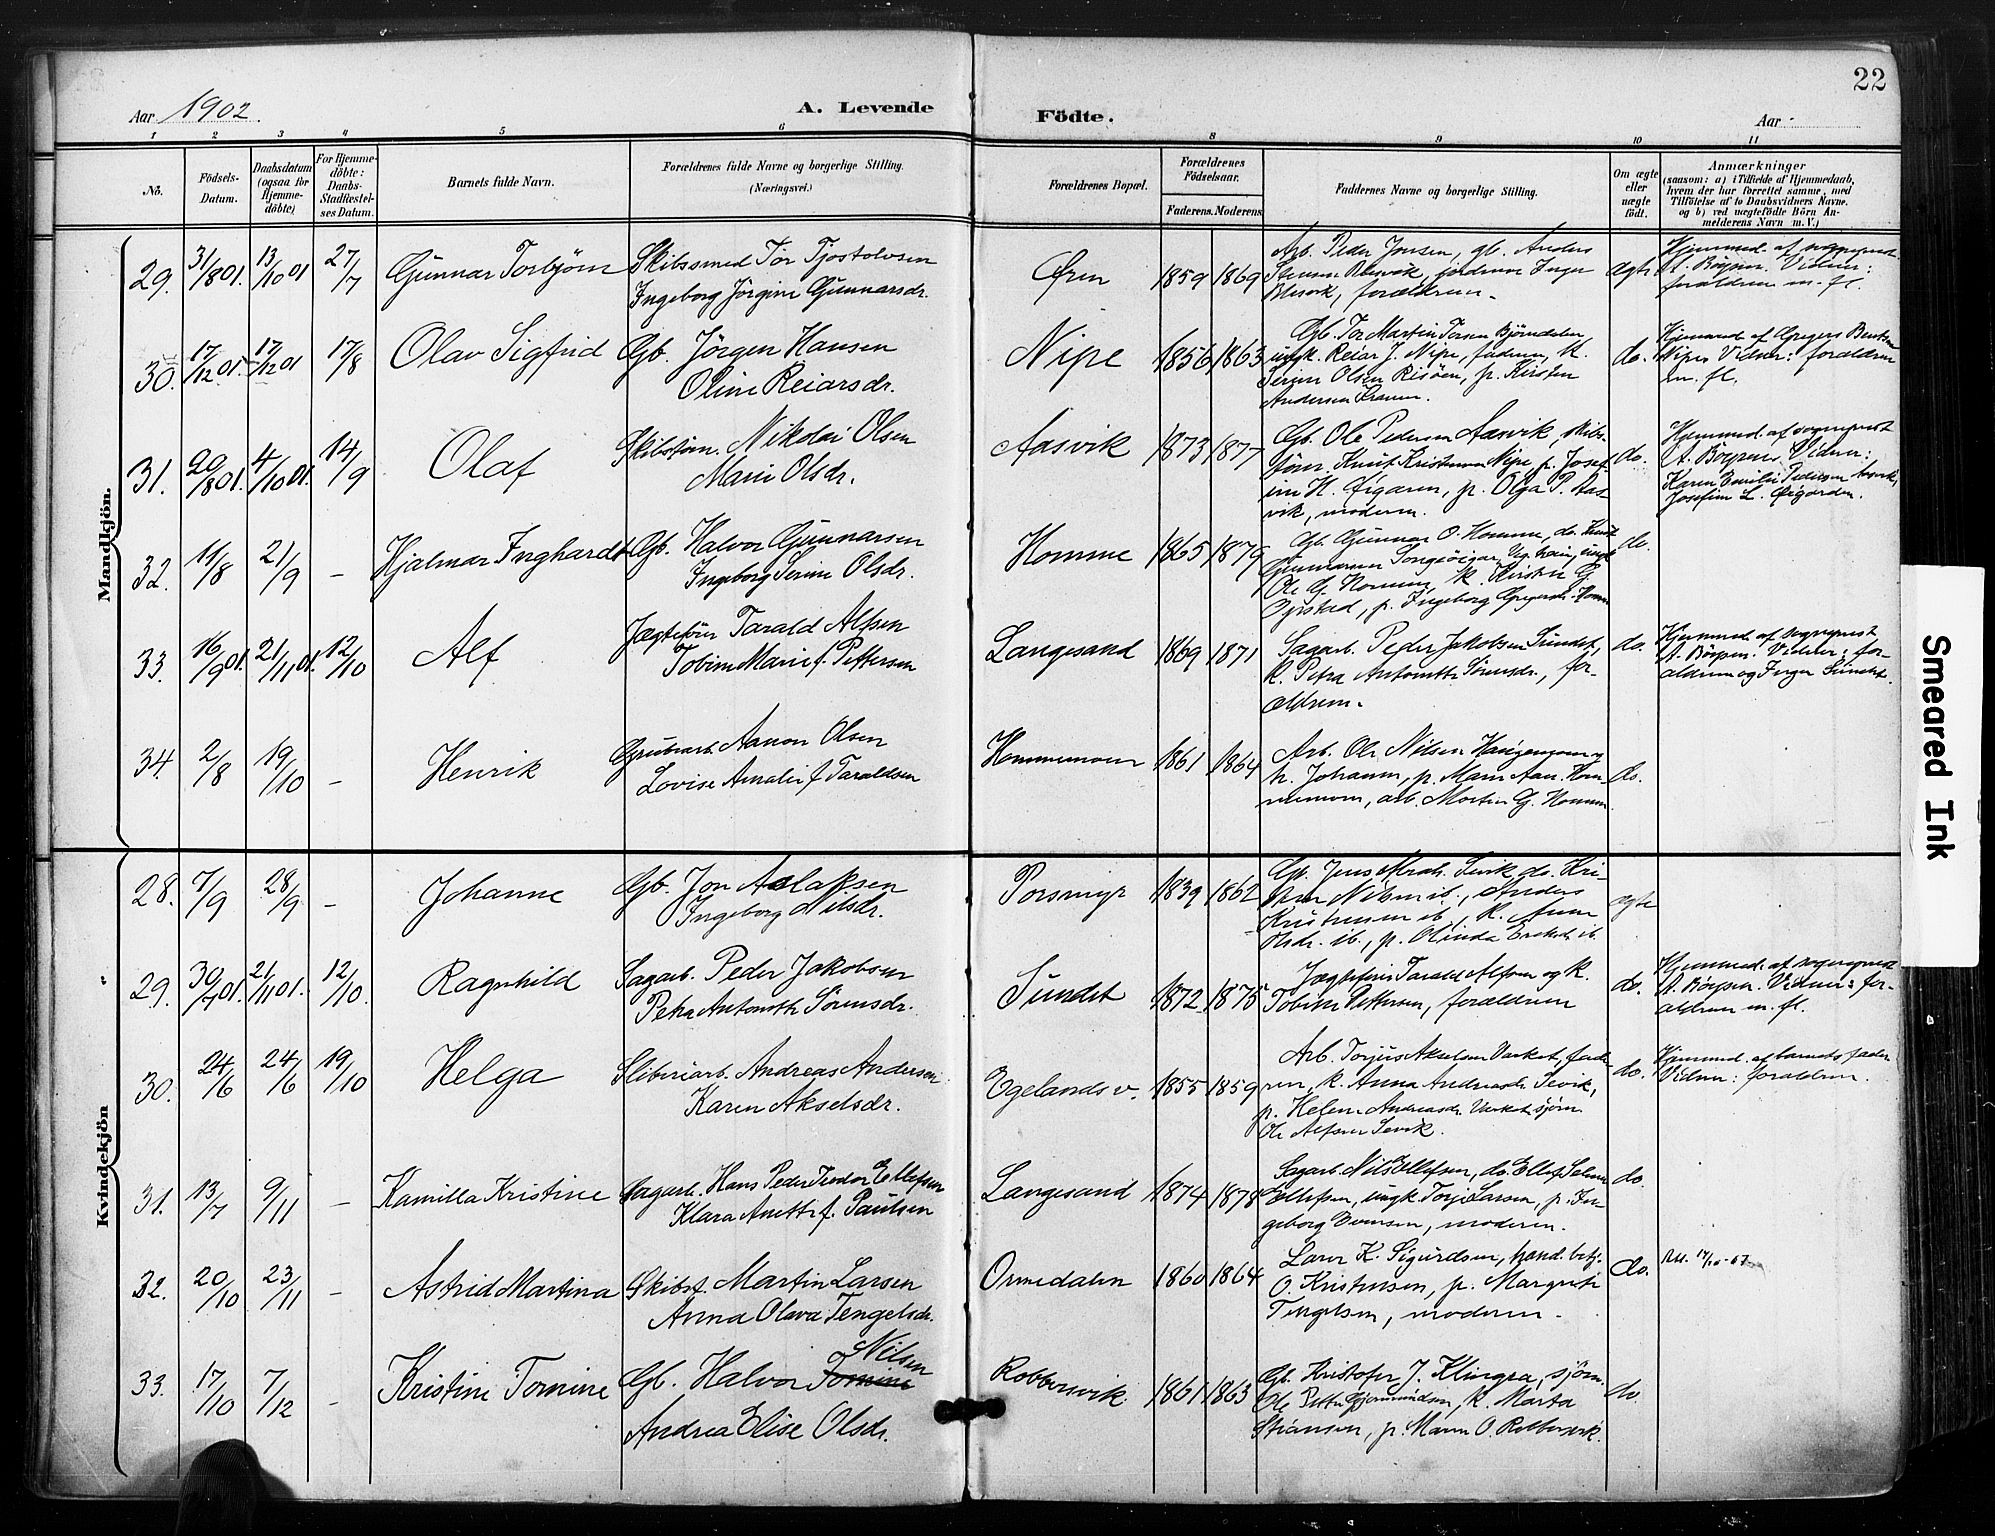 22
Aar 1902.
A. Levende
Födte.
Aar
1 2 3 4 5 6 8 9 10 11
No.
Födsels-
Datum.
Daabsdatum
(ogsaa for
Hjemme-
döbte)
For Hjemme-
döbte:
Daabs-
Stadfestel-
ses Datum.
Barnets fulde Navn.
Forældrenes fulde Navne og borgerlige Stilling.
(Næringsvei.)
Forældrenes Bopæl.
Forældrenes
Födselsaar.
Faderens. Moderens.
Faddernes Navne og borgerlige Stilling.
Om ægte
eller
uægte
födt.
Anmærkninger
(saasom: a) i Tilfælde af Hjemmedaab,
hvem der har forrettet samme, med
Tilföielse af to Daabsvidners Navne.
og b) ved uægtefödte Börn An-
melderens Navn m. V.)
Mandkjön.
29. 31/8 01. 13/10 01 27/7 Gunnar Torbjörn
Skibssmed Tor Tjostolvsen
Ingeborg Jörgine Gunnarsdr.
Ören 1859 1869
Arb. Peder Jensen, gb. Anders
forældrene.
ægte
Hjemmed. af sognepræst
A. Börsen. Vidner:
forældrene m. fl.
30. 17/12 01. 17/12 01 17/8 Olav Sigfrid
Gb. Jörgen Hansen
Oline Reiarsdr.
Nipe 1856 1863
Gb. Tor Martin Torsen Björndalen
ungk. Reiar J. Nipe, faderen, k.
Serine Olsen Risöen, p. Kirsten
Andersen
do.
Hjemmed. af Gregers
Nipe. Vidner: forældrene
m. fl.
31. 20/8 01. 4/10 01. 14/9 Olaf
Skibstöm. Nikolai Olsen
Marie Olsdr.
Aasvik 1873 1877
Gb. Ole Pedersen Aasvik, skibs-
töm. Knut Kristensen Nipe, p. Josef-
ine H. Öigaren, p. Olga P. Aas-
vik, moderen.
do.
Hjemmed. af sognepræst
A. Börsen. Vidner:
Karen Emilie Pedersen Aasvik,
Josefine L. Öigarden.
32. 11/8 21/9 - Hjalmar Inghardt
Gb. Halvor Gunnarsen
Ingeborg Serine Olsdr.
Homme 1865 1879
Gb. Gunnar O. Homme, do. Knut
Gunnarsen Songeöigar, ungk.
Ole G. Homme, k. Kirsten G.
p. Ingeborg
do.
33. 16/9 01. 21/11 01. 12/10 Alf
Jægteförer Tarald Alfsen
Tobine Marie f. Pettersen
Langesand 1869 1871
Sagarb. Peder Jakobsen Sundet,
k. Petra Antonette Sörensdr., for-
ældrene.
do.
Hjemmed. af sognepræst
A. Börsen. Vidner: for-
ældrene og Inger Sundet.
34. 2/8 19/10 - Henrik
Grubearb. Aanon Olsen
Lovise Amalie f. Taraldsen
Hommemoen 1861 1864
Arb. Ole Nilsen Haugenmoen og
h. Johanne, p. Maren Aan. Hom-
memoen, arb. Morten G. Homme.
do.
Kvindekjön
28. 7/9 28/9 - Johanne
Gb. Jon Aslaksen
Ingeborg Nilsdr.
Porsmyr 1839 1862
Gb. Jens Sevik, do. Kri-
Nilsen ib., Anders
Kristensen ib., k. Anne
Olsdr. ib., p. Olinda ib.
ægte
29. 30/7 01. 21/11 01. 12/10. Ragnhild
Sagarb. Peder Jakobsen
Petra Antonette Sörensdr.
Sundet 1872 1875
Jægteförer Tarald Alfsen og k.
Tobine Pettersen, forældrene
do.
Hjemmed. af sognepræst
A. Börsen. Vidner: for-
ældrene m. fl.
30. 24/6 24/6 19/10 Helga
Sliberiarb. Andreas Andersen
Karen Akselsdr.
Egelands v. 1855 1859
Arb. Torjus Akselsen Værket, fade-
ren, k. Anna Andreasdr. Sevik,
p. Helene Andreasdr. Værket, sjöm.
Ole Alfsen Sevik.
do.
Hjemmed. af barnets fader
Vidner: forældrene.
31. 13/7 9/11 - Kamilla Kristine
Sagarb. Hans Peder Teodor Ellefsen
Klara Anette f. Paulsen
Langesand 1874 1878
Sagarb. Nils Ellefsen, do. Ellef
Ellefsen, ungk. Torje Larsen, p. In-
geborg Evensen, moderen.
do.
32. 20/10 23/11 - Astrid Martina
Skibsf. Martin Larsen
Anna Olava Tengelsdr.
Ormedalen 1860 1864
Laver K. Sigurdsen, hand. betj.
O. Kristensen, p. Margrete
Tengelsen, moderen.
do.
33. 17/10 7/12 - Kristine Tomine
Nilsen
Gb. Halvor Tomine
Andrea Elise Olsdr.
Robbersvik 1861 1863
Gb. Kristofer J. Klingra, sjöm.
Ole Petter Gjermundsen, k. Marta
Stiansen, p. Maren O. Robbersvik.
do
Smeared Ink